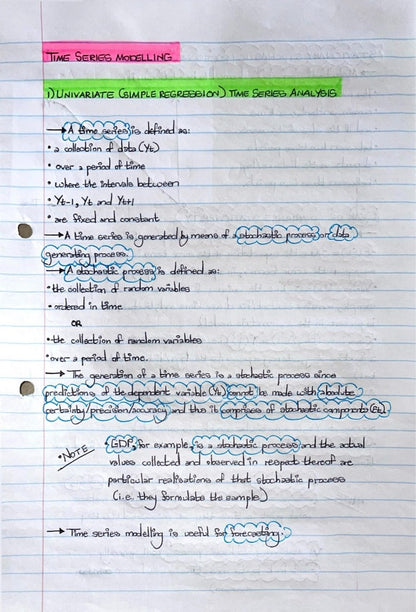 TIME SERIES MODELLING
1) UNIVARIATE (SIMPLE REGRESSION) TIME SERIES ANALYSIS
→ A time series is defined as:
• a collection of data (Yt)
• over a period of time
• where the intervals between
• Yt-1, Yt and Yt+1
• are fixed and constant
→ A time series is generated by means of a stochastic process or data
generating process.
→ A stochastic process is defined as:
• the collection of random variables
• ordered in time
OR
• the collection of random variables
• over a period of time.
→ The generation of a time series is a stochastic process since
predictions of the dependent variable (Yt) cannot be made with absolute
certainty/precision/accuracy and thus it comprises of stochastic components (Et).
• NOTE • GDP, for example, is a stochastic process and the actual
values collected and observed in respect thereof are
particular realisations of that stochastic process
(i.e. they formulate the sample)
→ Time series modelling is useful for forecasting.